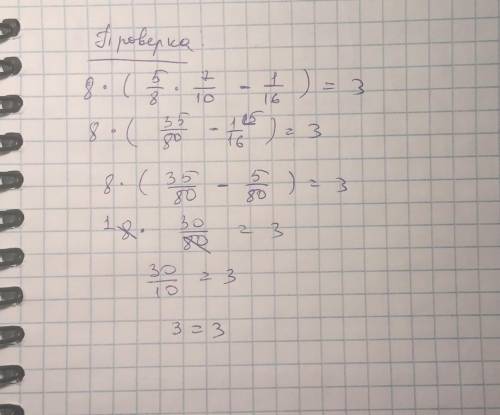 Проверка:
8 · ( 5/8 · 7/10 - 1/16 ) = 3
8 · ( 35/80 - 1/16 ⁵ ) = 3
8 · ( 35/80 - 5/80 ) = 3
1 8 · 30/80 = 3
30/10 = 3
3 = 3